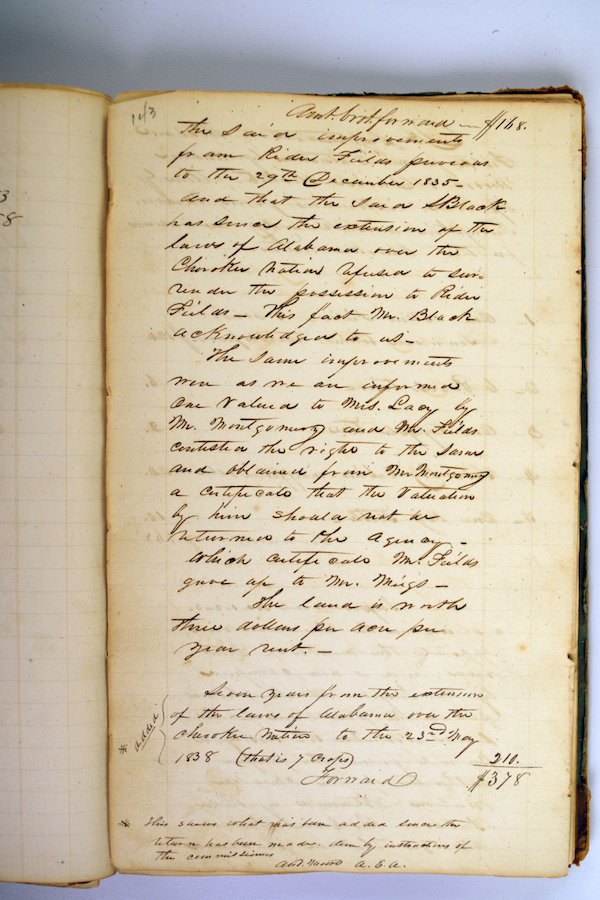 113
Amt. brot. forward — $168.
the said improvements
from Rider Fields previous
to the 29th December 1835—
and that the said Black
has since the extension of the
laws of Alabama over the
Cherokee Nation refused to sur-
render the possession to Rider
Fields — This fact Mr. Black
acknowledged to us —
The same improvements
were as we are informed
one valued to Mrs. Lacy by
Mr. Montgomery and Mr. Fields
contested the right to the same
and obtained from Mr Montgomy
a certificate that the valuation
by him should not be
returned to the Agency —
Which certificate Mr. Fields
gave up to Mr. Meigs —
The land is worth
three dollars per acre per
year rent. —
Seven years from the extension
of the laws of Alabama over the
Cherokee Nation to the 23rd May
1838 (that is 7 crops) 210.
Forward $378
* added
* This shews what has been added since the
return has been made, done by instructions of
the commissioners
A. E. A.
3
8